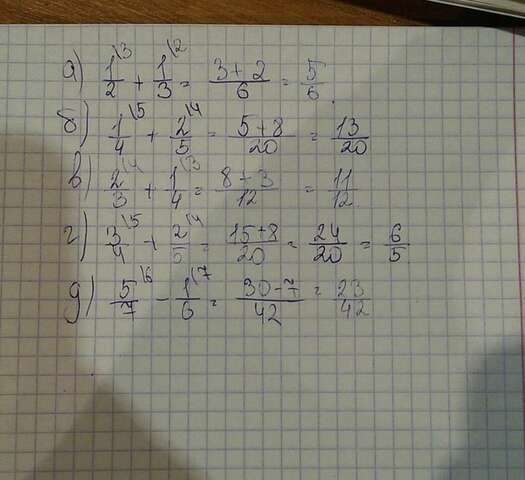 а) 1/2\3 + 1/3\2 = 3+2/6 = 5/6.
б) 1/4\5 + 2/5\4 = 5+8/20 = 13/20
в) 2/3\4 + 1/4\3 = 8+3/12 = 11/12
г) 3/4\5 + 2/5\4 = 15+8/20 = 24/20 = 6/5
д) 5/7\6 - 1/6\7 = 30-7/42 = 23/42